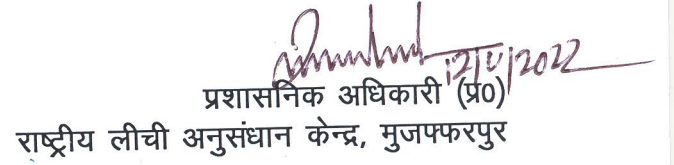 प्रशासनिक अधिकारी (प्र0)
राष्ट्रीय लीची अनुसंधान केन्द्र, मुजफ्फरपुर